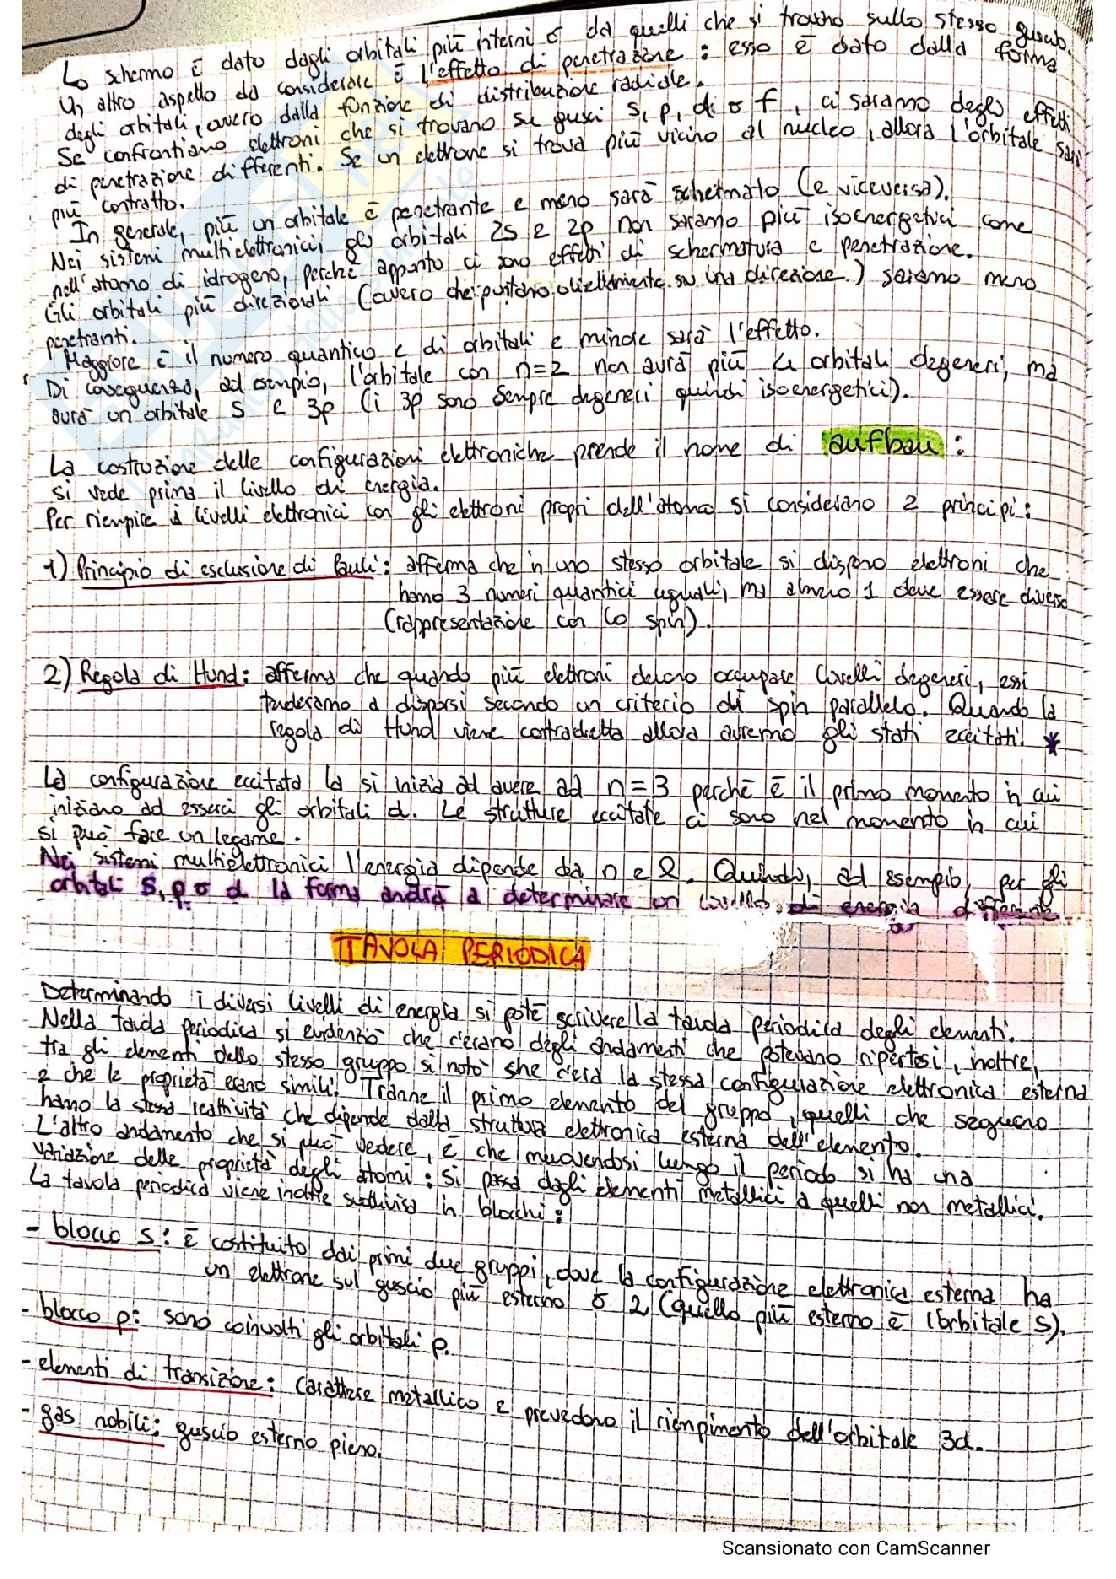 Lo schermo è dato dagli orbitali più interni o da quelli che si trovano sullo stesso guscio.
Un altro aspetto da considerare è l'effetto di penetrazione: esso è dato dalla forma
degli orbitali, ovvero dalla funzione di distribuzione radiale.
Se confrontiamo elettroni che si trovano su gusci s, p, d o f, ci saranno degli effetti
di penetrazione differenti. Se un elettrone si trova più vicino al nucleo, allora l'orbitale sarà
più contratto.
In generale, più un orbitale è penetrante e meno sarà schermato (e viceversa).
Nei sistemi multielettronici gli orbitali 2s e 2p non saranno più isoenergetici come
nell'atomo di idrogeno, perché appunto ci sono effetti di schermatura e penetrazione.
Gli orbitali più direzionali (ovvero che puntano su una direzione) saranno meno
penetranti.
Maggiore è il numero quantico e di orbitali e minore sarà l'effetto.
Di conseguenza, ad esempio, l'orbitale con n=2 non avrà più 4 orbitali degeneri, ma
avrà un orbitale s e 3p (i 3p sono sempre degeneri quindi isoenergetici).
La costruzione delle configurazioni elettroniche prende il nome di aufbau:
si vede prima il livello di energia.
Per riempire i livelli elettronici con gli elettroni propri dell'atomo si considerano 2 principi:
1) Principio di esclusione di Pauli: afferma che in uno stesso orbitale si dispono elettroni che
hanno 3 numeri quantici uguali, ma almeno 1 deve essere diverso
(rappresentazione con lo spin).
2) Regola di Hund: afferma che quando più elettroni devono occupare livelli degeneri, essi
tenderanno a disporsi secondo un criterio di spin parallelo. Quando la
regola di Hund viene contraddetta allora avremo gli stati eccitati. *
La configurazione eccitata la si inizia ad avere ad n=3 perché è il primo momento in cui
iniziano ad esserci gli orbitali d. Le strutture eccitate ci sono nel momento in cui
si può fare un legame.
Nei sistemi multielettronici l'energia dipende da n e l. Quindi, ad esempio, per gli
orbitali s, p o d la forma andrà a determinare un livello di energia differente.
TAVOLA PERIODICA
Determinando i diversi livelli di energia si poté scrivere la tavola periodica degli elementi.
Nella tavola periodica si evidenziò che c'erano degli andamenti che potevano ripetersi, inoltre,
tra gli elementi dello stesso gruppo si notò she c'era la stessa configurazione elettronica esterna
e che le proprietà erano simili. Tranne il primo elemento del gruppo, quelli che seguono
hanno la stessa reattività che dipende dalla struttura elettronica esterna dell'elemento.
L'altro andamento che si può vedere, è che muovendosi lungo il periodo si ha una
variazione delle proprietà degli atomi: si passa dagli elementi metallici a quelli non metallici.
La tavola periodica viene inoltre suddivisa in blocchi:
- blocco s: è costituito dai primi due gruppi, dove la configurazione elettronica esterna ha
un elettrone sul guscio più esterno o 2 (quello più esterno è l'orbitale s).
- blocco p: sono coinvolti gli orbitali p.
- elementi di transizione: carattere metallico e prevedono il riempimento dell'orbitale 3d.
- gas nobili: guscio esterno pieno.
Scansionato con CamScanner